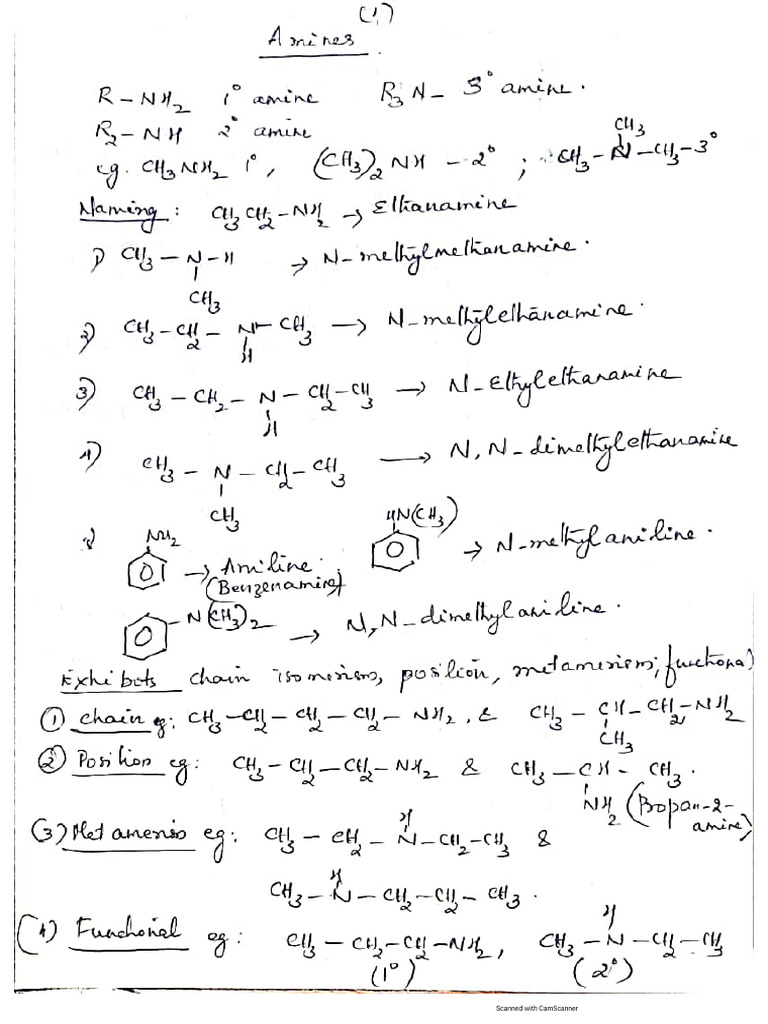 (1)
Amines.
R-NH2 1° amine R3N - 3° amine.
R2-NH 2° amine
CH3
eg. CH3NH2 1°, (CH3)2 NH - 2° ; CH3-N-CH3-3°
Naming: CH3CH2-NH2 → Ethanamine
1) CH3-N-H → N-methylmethanamine.
CH3
2) CH3-CH2-N-CH3 → N-methylethanamine.
H
3) CH3-CH2-N-CH2-CH3 → N-Ethylethanamine
H
4) CH3-N-CH2-CH3 → N,N-dimethylethanamine
CH3
NH2 HN(CH3)
→ Aniline. → N-methylaniline.
(Benzenamine)
-N(CH3)2 → N,N-dimethylaniline.
Exhibits chain isomerism, position, metamerism, functional
① chain eg: CH3-CH2-CH2-CH2-NH2, & CH3-CH-CH2-NH2
CH3
② Position eg: CH3-CH2-CH2-NH2 & CH3-CH-CH3.
NH2 (Propan-2-
amine)
H
(3) Metameris eg: CH3-CH2-N-CH2-CH3 &
H
CH3-N-CH2-CH2-CH3.
H
(4) Functional eg: CH3-CH2-CH2-NH2, CH3-N-CH2-CH3
(1°) (2°)
Scanned with CamScanner